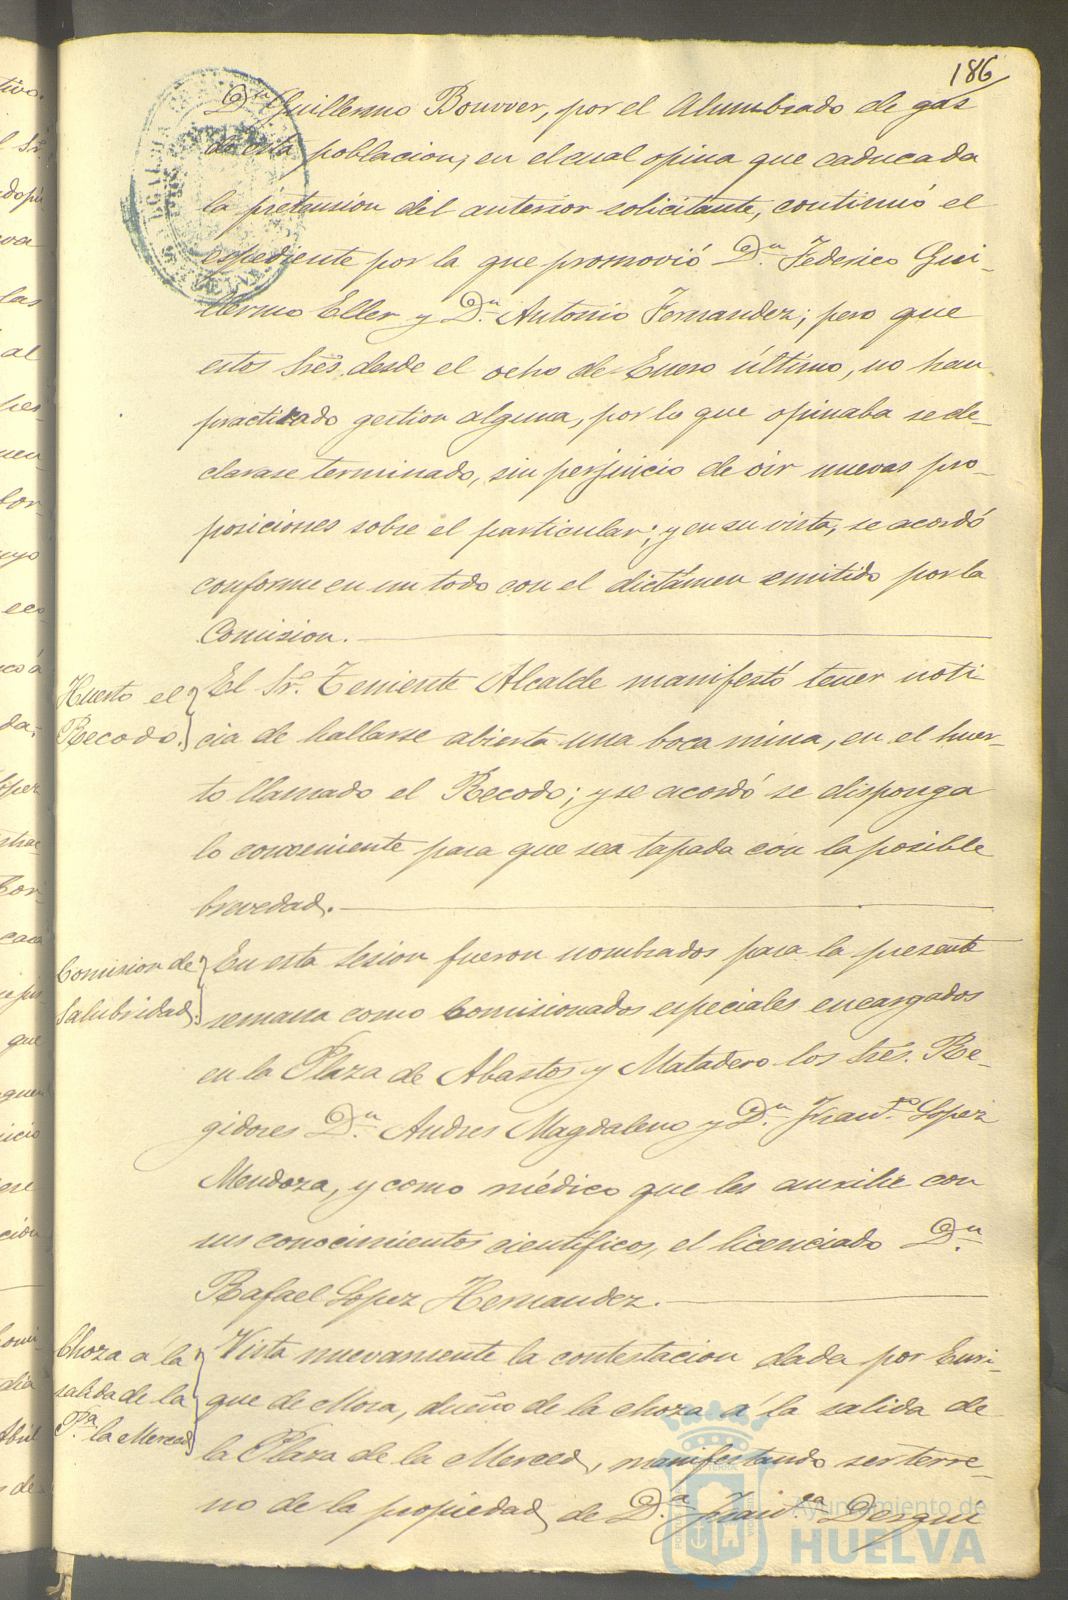 186
Dn. Guillermo Bouvver, por el Alumbrado de gas
de esta poblacion; en el cual opina que caducada
la pretension del anterior solicitante, continuó el
espediente por la que promovió Dn. Federico Gui-
llermo Eller y Dn. Antonio Fernandez; pero que
estos Srés. desde el ocho de Enero último, no han
practicado gestion alguna, por lo que opinaba se de-
clarase terminado, sin perjuicio de oir nuevas pro-
posiciones sobre el particular; y en su vista, se acordó
conforme en un todo con el dictámen emitido por la
Comision.
Huerto el
Recodo.
El Sr. Teniente Alcalde manifestó tener noti-
cia de hallarse abierta una boca mina, en el huer-
to llamado el Recodo; y se acordó se disponga
lo conveniente para que sea tapada con la posible
brevedad.
Comision de
Salubridad.
En esta sesion fueron nombrados para la presente
semana como Comisionados especiales encargados
en la Plaza de Abastos y Matadero los Srés. Re-
gidores Dn. Andres Magdaleno y Dn. Franco. Lopez
Mendoza, y como médico que les auxilie con
sus conocimientos cientificos, el licenciado Dn.
Rafael Lopez Hernandez.
Choza á la
salida de la
Pa. la Merced
Vista nuevamente la contestacion dada por Enri-
que de Mora, dueño de la choza á la salida de
la Plaza de la Merced, manifestando ser terre-
no de la propiedad de Da. Franca. Dergui
Ayuntamiento de
HUELVA